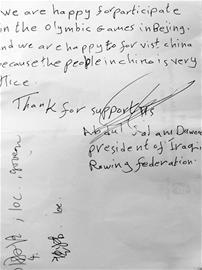 we are happy for participate
in the Olymbic Games in Beijing.
and we are happy to for vist china
because the people in china is very
Nice.
Thank for support us
Abdul Salam Dawood
president of Iraqi
Rowing federation